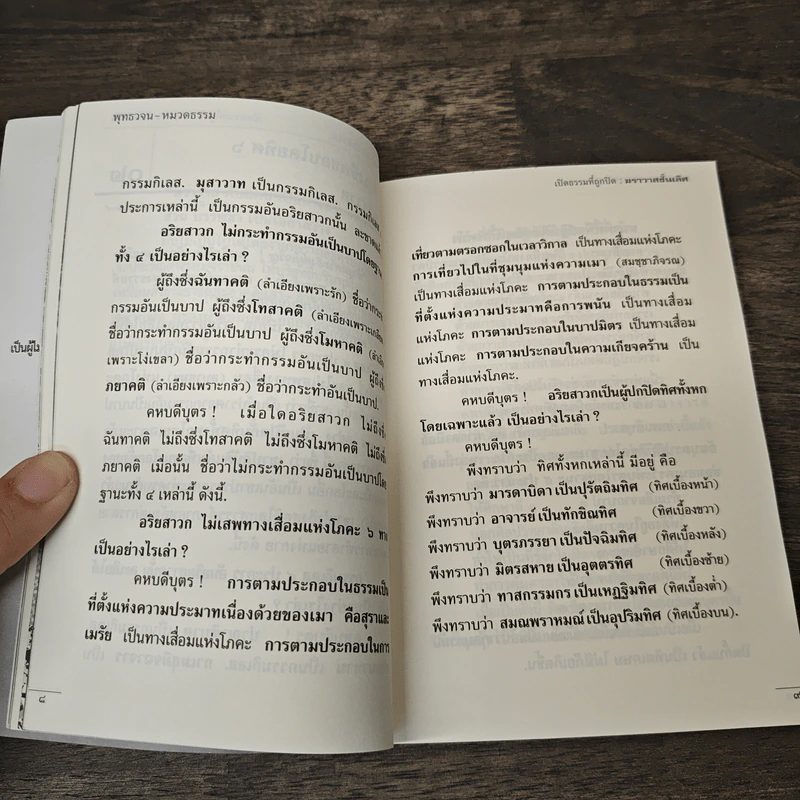 พุทธวจน-หมวดธรรม
กรรมกิเลส. มุสาวาท เป็นกรรมกิเลส. กรรมกิเลส
ประการเหล่านี้ เป็นกรรมอันอริยสาวกนั้น
อริยสาวก ไม่กระทำกรรมอันเป็นบาปโดย
ทั้ง ๔ เป็นอย่างไรเล่า ?
ผู้ถึงซึ่งฉันทาคติ (ลำเอียงเพราะรัก) ชื่อว่า
กรรมอันเป็นบาป ผู้ถึงซึ่งโทสาคติ (ลำเอียงเพราะ
ชื่อว่ากระทำกรรมอันเป็นบาป ผู้ถึงซึ่งโมหาคติ
เพราะโง่เขลา) ชื่อว่ากระทำกรรมอันเป็นบาป
ภยาคติ (ลำเอียงเพราะกลัว) ชื่อว่ากระทำอันเป็นบาป.
คหบดีบุตร ! เมื่อใดอริยสาวก ไม่ถึง
ฉันทาคติ ไม่ถึงซึ่งโทสาคติ ไม่ถึงซึ่งโมหาคติ
ภยาคติ เมื่อนั้น ชื่อว่าไม่กระทำกรรมอันเป็นบาป
ฐานะทั้ง ๔ เหล่านี้ ดังนี้.
อริยสาวก ไม่เสพทางเสื่อมแห่งโภคะ ๖ ทาง
เป็นอย่างไรเล่า ?
คหบดีบุตร ! การตามประกอบในธรรมเป็น
ที่ตั้งแห่งความประมาทเนื่องด้วยของเมา คือสุราและ
เมรัย เป็นทางเสื่อมแห่งโภคะ การตามประกอบในการ
๘
เป็นผู้ไม่
เปิดธรรมที่ถูกปิด : ฆราวาสชั้นเลิศ
เที่ยวตามตรอกซอกในเวลาวิกาล เป็นทางเสื่อมแห่งโภคะ
การเที่ยวไปในที่ชุมนุมแห่งความเมา (สมชฺชาภิจรณ)
เป็นทางเสื่อมแห่งโภคะ การตามประกอบในธรรมเป็น
ที่ตั้งแห่งความประมาทคือการพนัน เป็นทางเสื่อม
แห่งโภคะ การตามประกอบในบาปมิตร เป็นทางเสื่อม
แห่งโภคะ การตามประกอบในความเกียจคร้าน เป็น
ทางเสื่อมแห่งโภคะ.
คหบดีบุตร ! อริยสาวกเป็นผู้ปกปิดทิศทั้งหก
โดยเฉพาะแล้ว เป็นอย่างไรเล่า ?
คหบดีบุตร !
พึงทราบว่า ทิศทั้งหกเหล่านี้ มีอยู่ คือ
พึงทราบว่า มารดาบิดา เป็นปุรัตถิมทิศ (ทิศเบื้องหน้า)
พึงทราบว่า อาจารย์ เป็นทักขิณทิศ (ทิศเบื้องขวา)
พึงทราบว่า บุตรภรรยา เป็นปัจฉิมทิศ (ทิศเบื้องหลัง)
พึงทราบว่า มิตรสหาย เป็นอุตตรทิศ (ทิศเบื้องซ้าย)
พึงทราบว่า ทาสกรรมกร เป็นเหฏฐิมทิศ (ทิศเบื้องต่ำ)
พึงทราบว่า สมณพราหมณ์ เป็นอุปริมทิศ (ทิศเบื้องบน).
๙